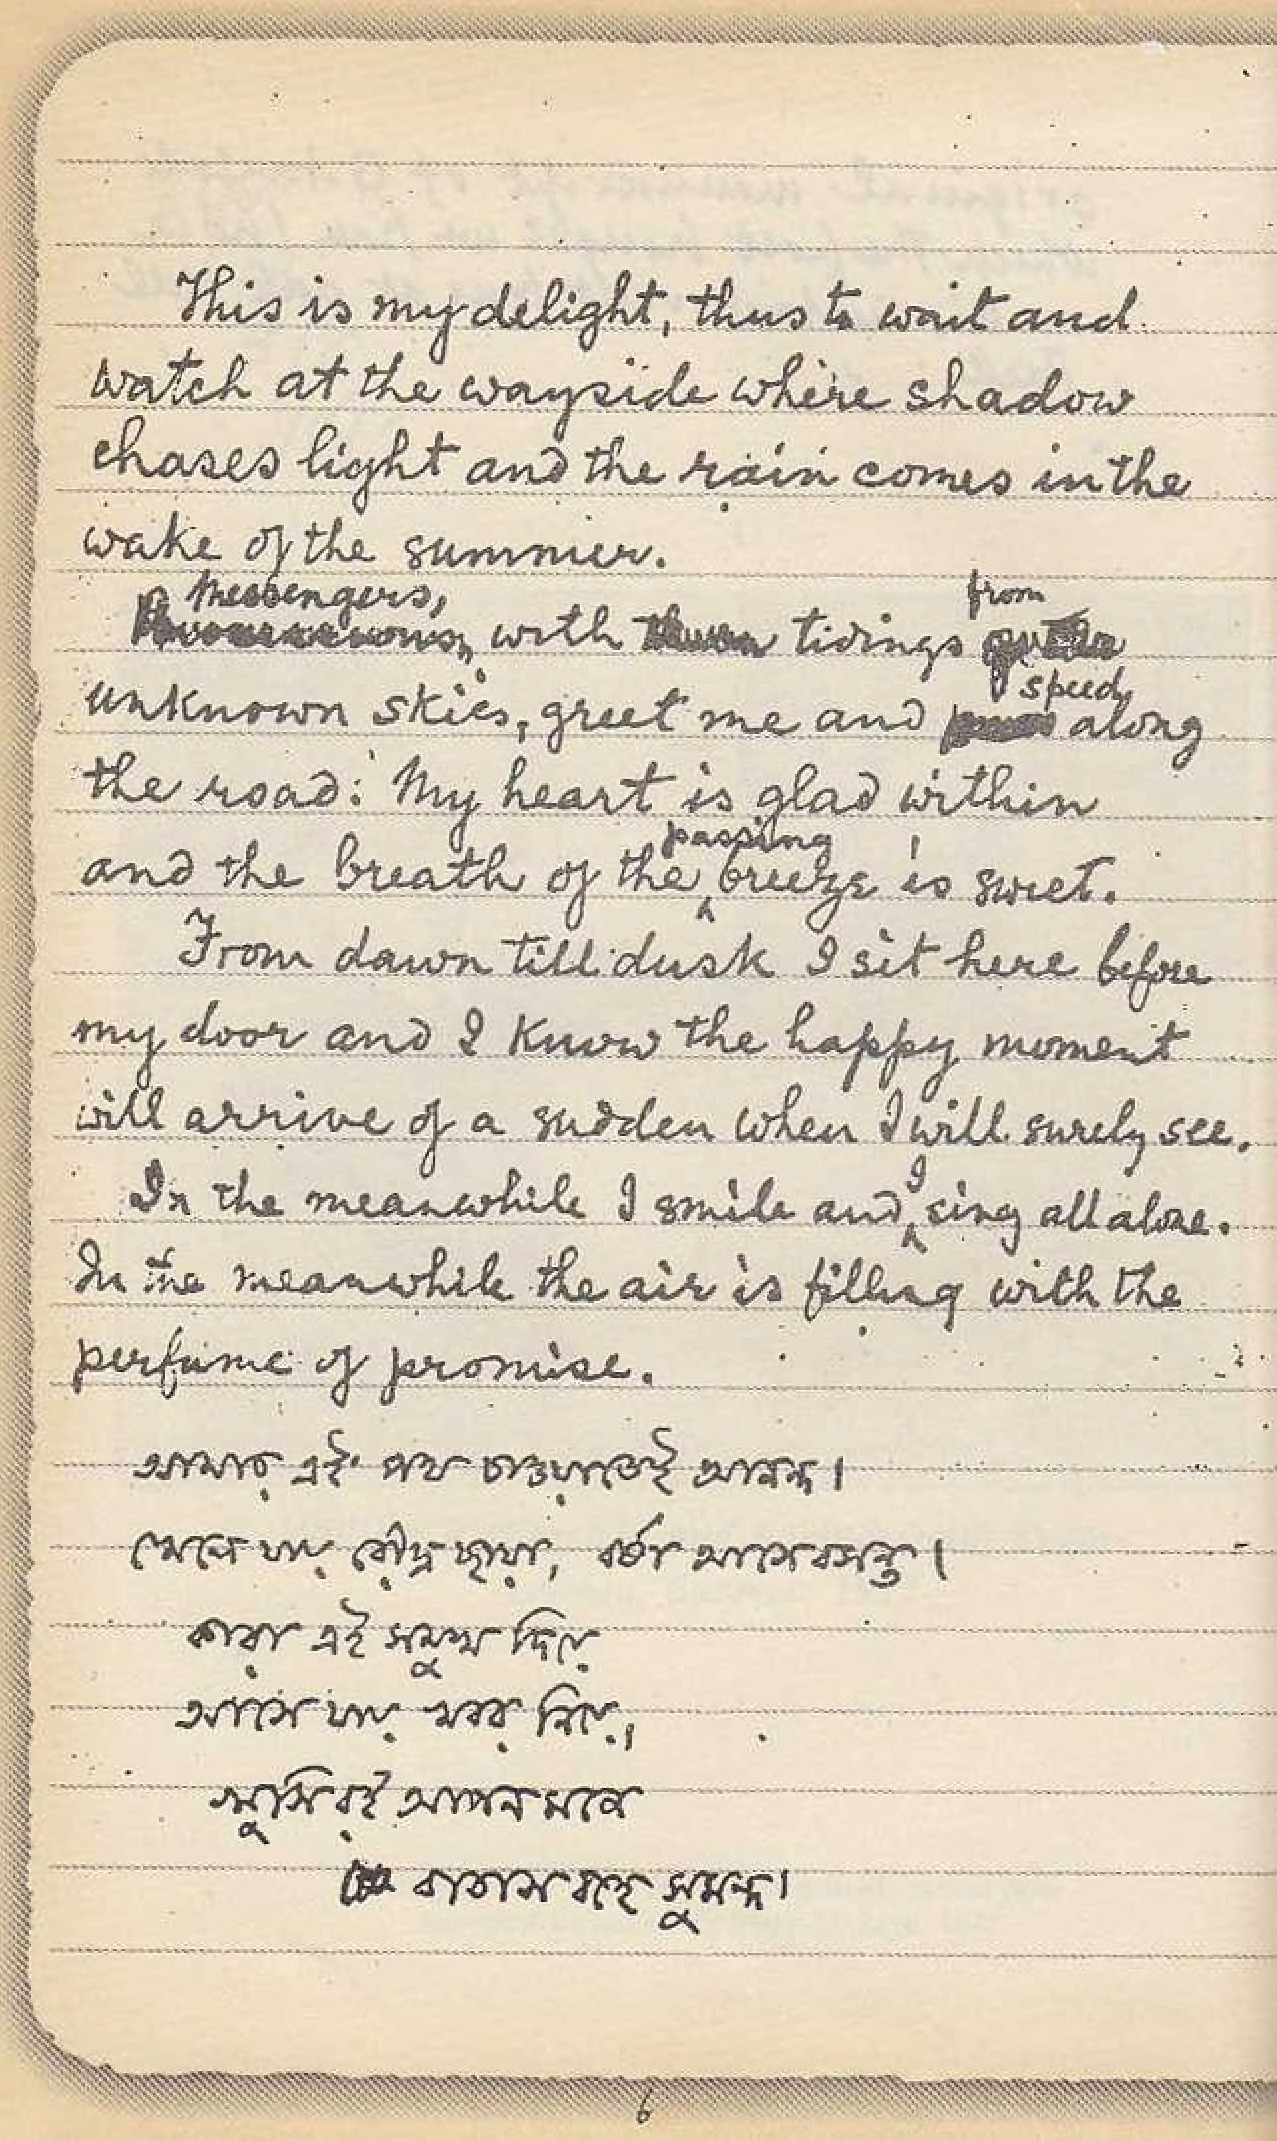 This is my delight, thus to wait and
watch at the wayside where shadow
chases light and the rain comes in the
wake of the summer.
Messengers, with tidings from
unknown skies, greet me and speed along
the road. My heart is glad within
and the breath of the passing breeze is sweet.
From dawn till dusk I sit here before
my door and I know the happy moment
will arrive of a sudden when I will surely see.
In the meanwhile I smile and I sing all alone.
In the meanwhile the air is filling with the
perfume of promise.
আমার এই পথ চাওয়াতেই আনন্দ।
খেলে যায় রৌদ্র ছায়া, বর্ষা আসে বসন্ত।
কারা এই সমুখ দিয়ে
আসে যায় খবর নিয়ে,
খুসি রই আপন মনে
বাতাস বহে সুমন্দ।
6